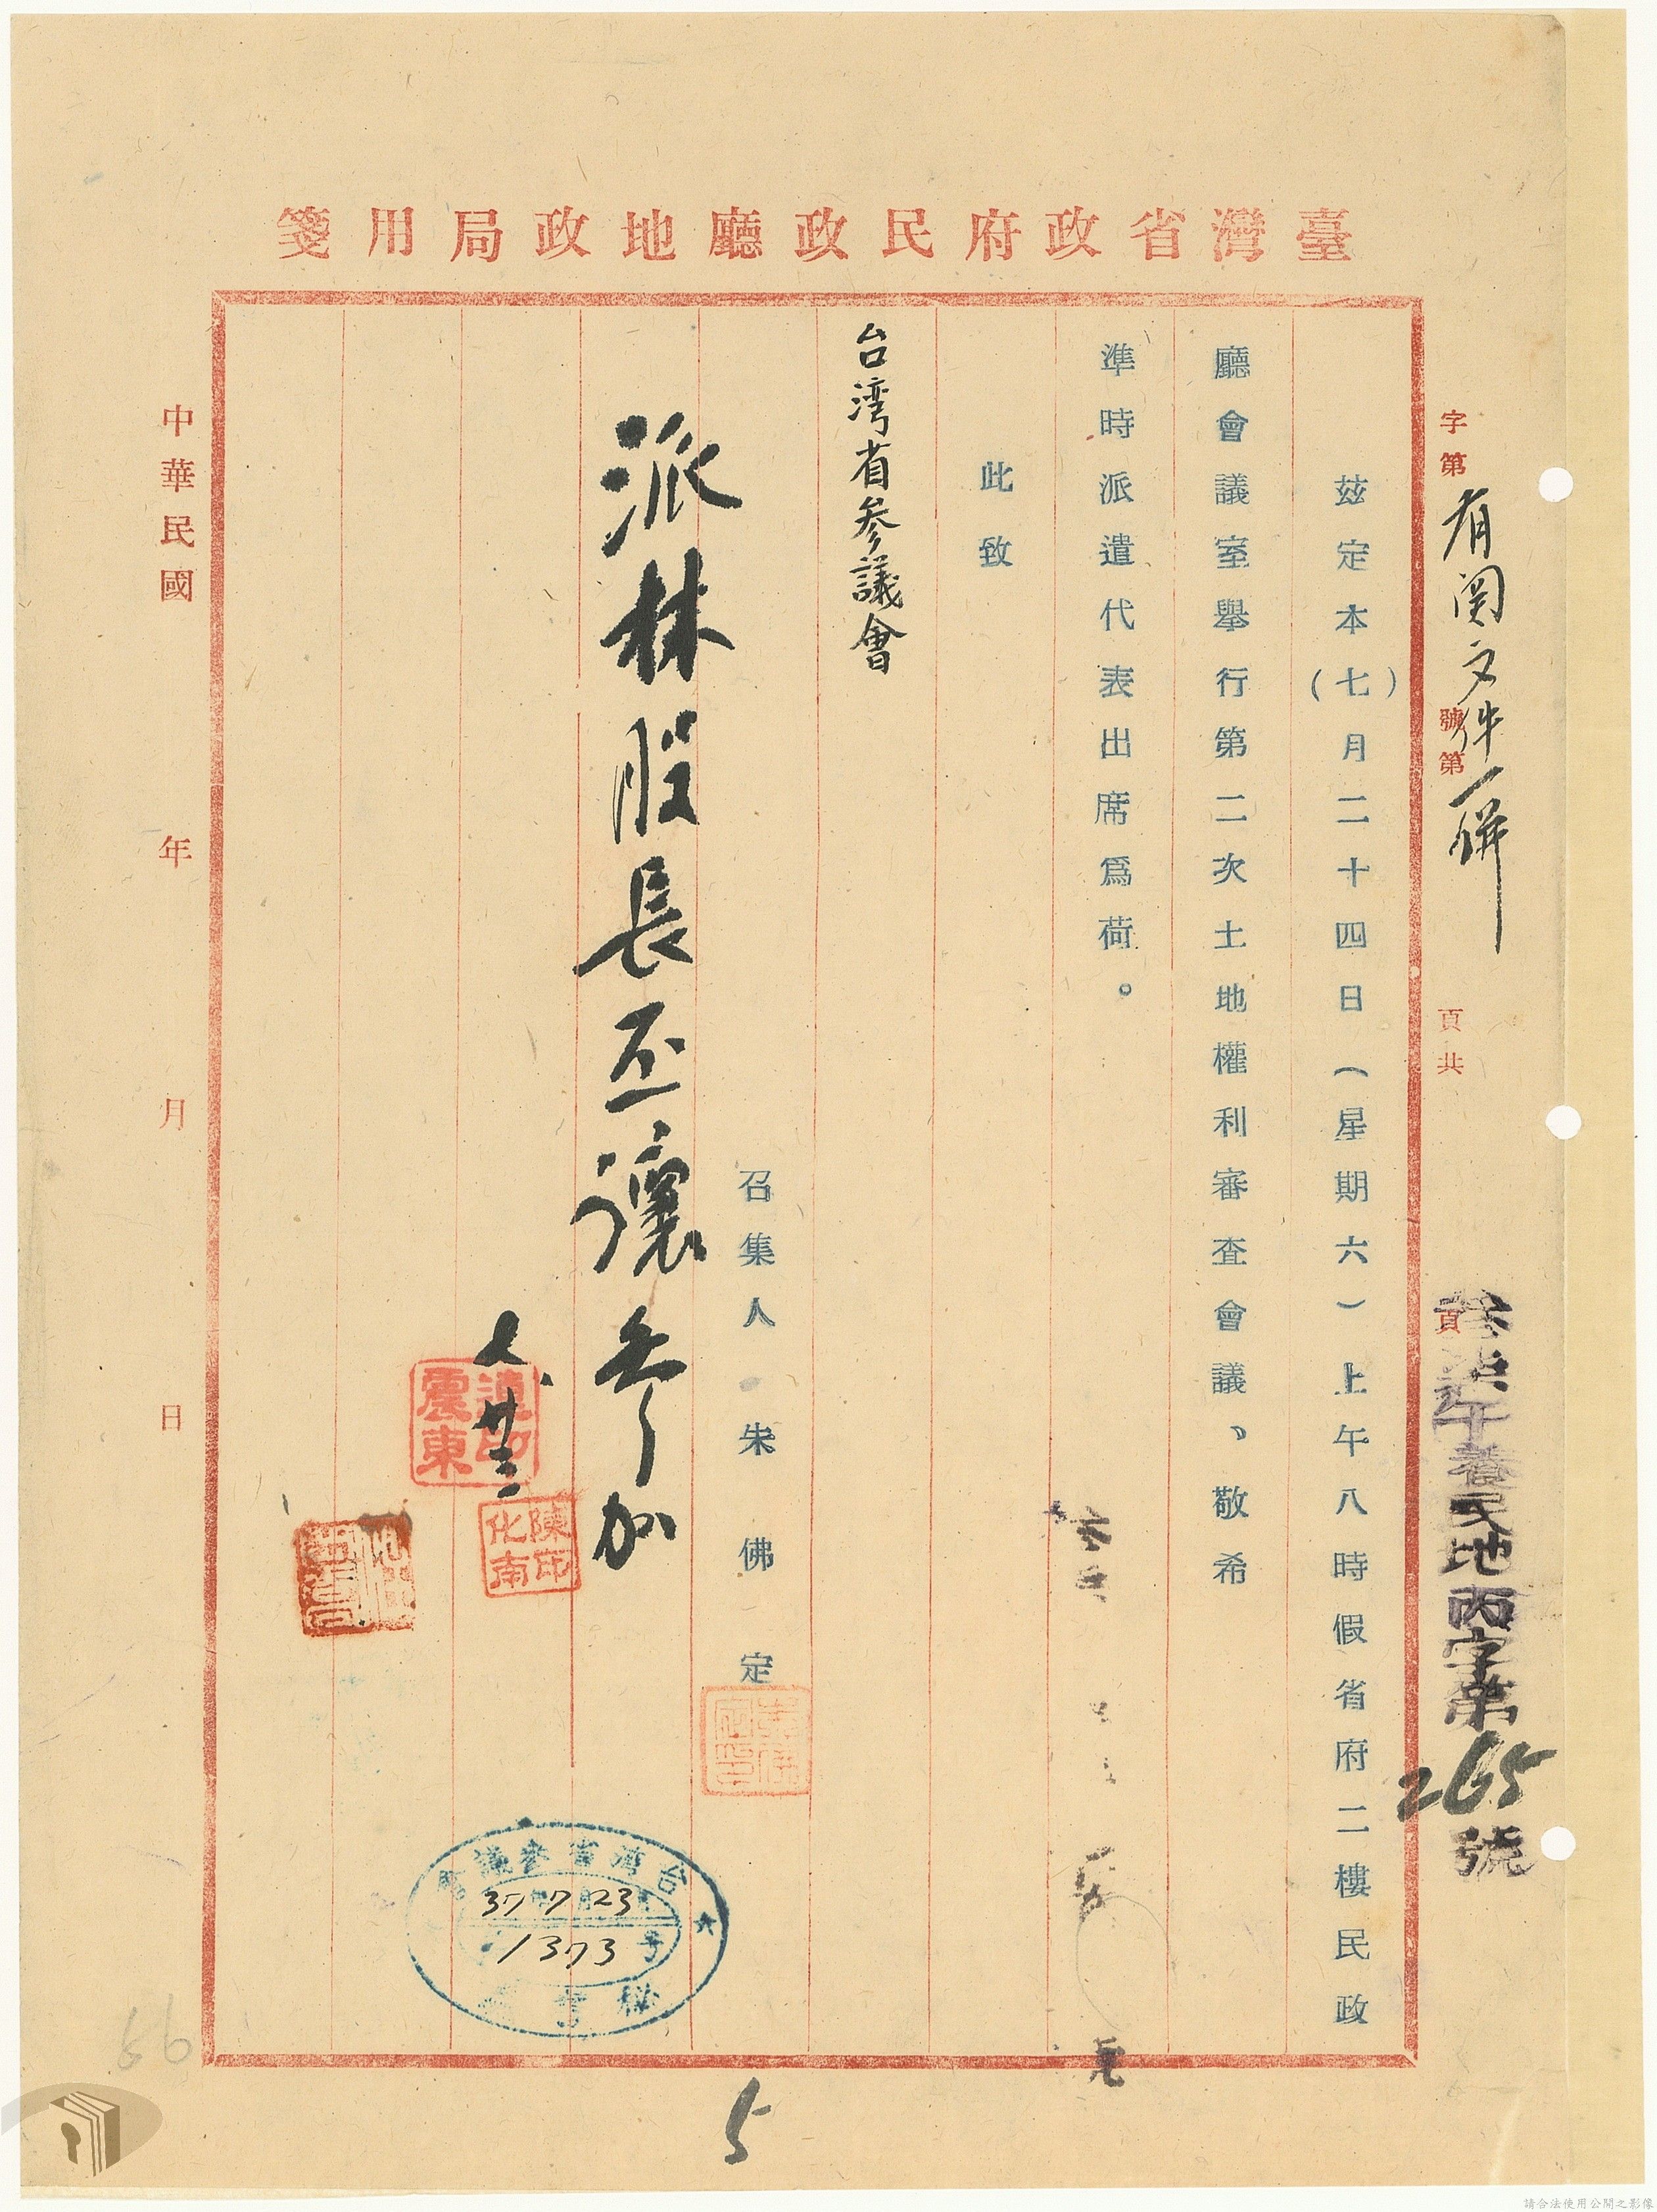 臺灣省政府民政廳地政局用箋
字第 號第 頁共 頁
有関文件一併
午養民地丙字第265號
茲定本(七)月二十四日(星期六)上午八時假省府二樓民政
廳會議室舉行第二次土地權利審查會議、敬希
準時派遣代表出席爲荷。
此致
台湾省參議會
召集人 朱佛定
派林股長丕讓參加
七、廿三、
震東
陳印化南
台灣省參議會
37 7 23
1373
中華民國 年 月 日
5
66
請合法使用公開之影像